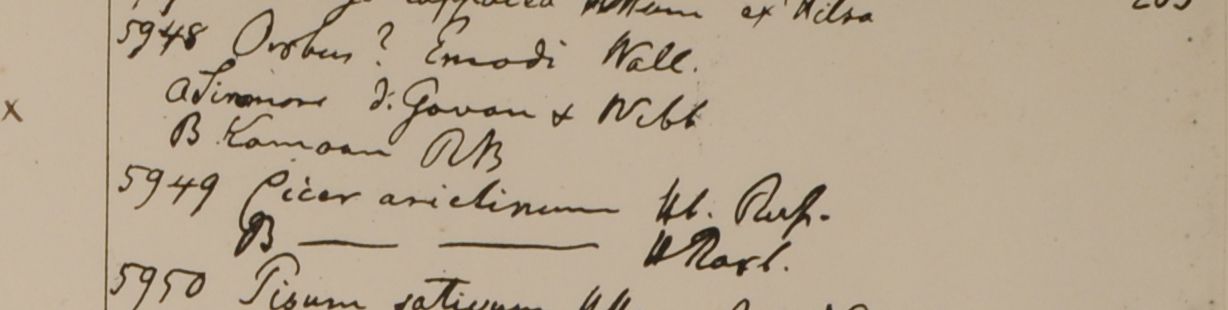 ex Hilsa 203
5948 Orobus? Emodi Wall.
a Sirmore d: Govan & Webb
B Kamoon RB
5949 Cicer arietinum Hb. Russ.
B — — H Roxb.
5950 Pisum sativum
x